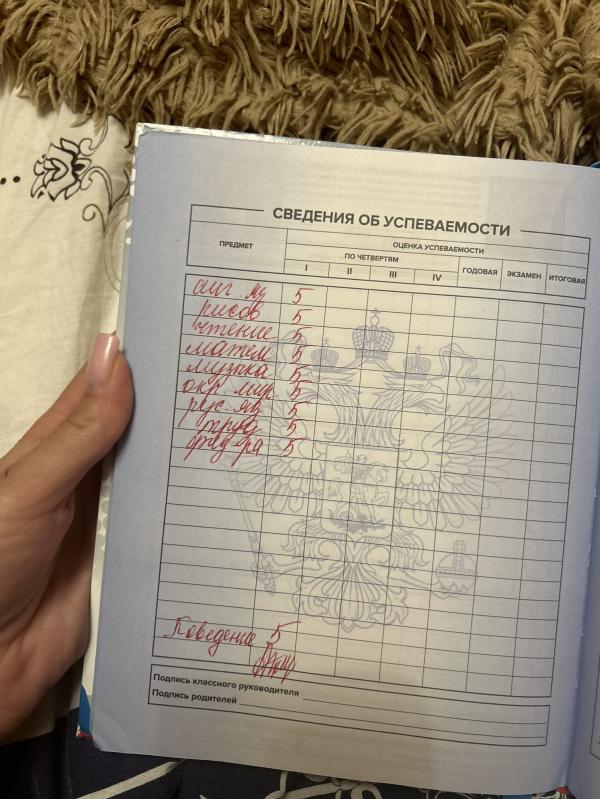 СВЕДЕНИЯ ОБ УСПЕВАЕМОСТИ
ПРЕДМЕТ
ОЦЕНКА УСПЕВАЕМОСТИ
ПО ЧЕТВЕРТЯМ
ГОДОВАЯ ЭКЗАМЕН ИТОГОВАЯ
I II III IV
анг. яз 5
рисов 5
чтение 5
матем 5
музыка 5
окр. мир 5
рус. яз 5
труд 5
физ-ра 5
Поведение 5
Подпись классного руководителя
Подпись родителей